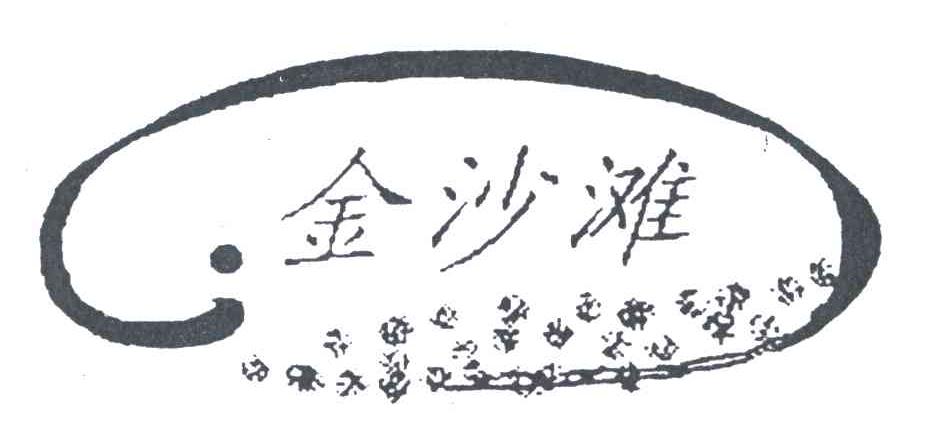 金沙滩